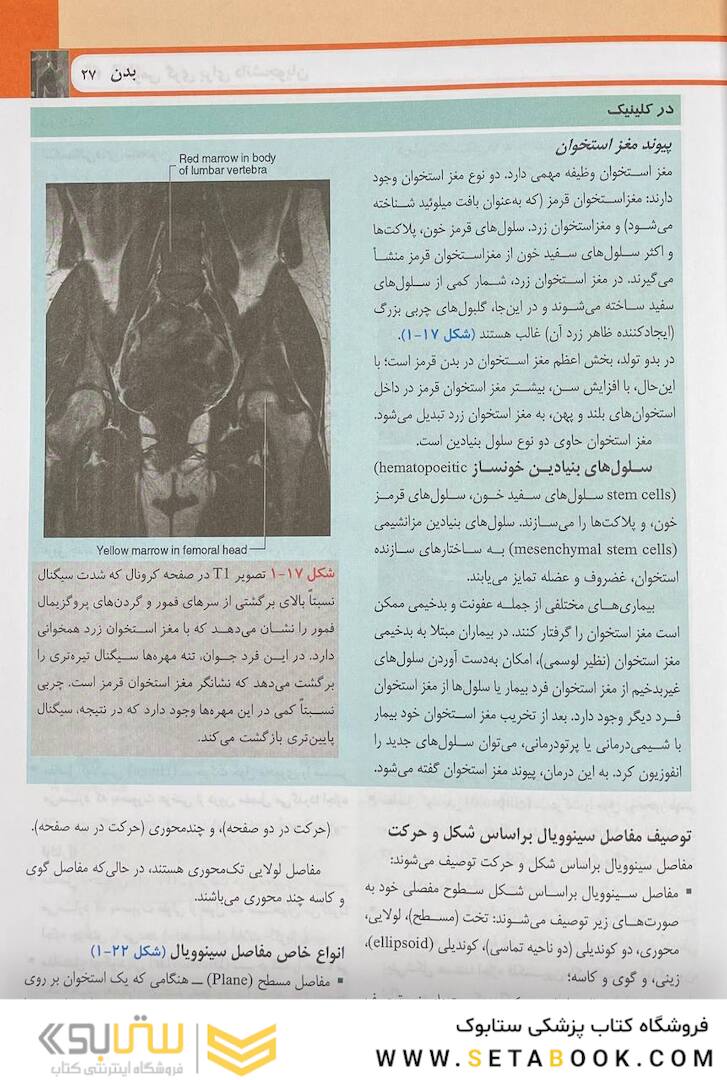 بدن ۲۷
در کلینیک
پیوند مغز استخوان
مغز استخوان وظیفه مهمی دارد. دو نوع مغز استخوان وجود
دارند: مغزاستخوان قرمز (که به‌عنوان بافت میلوئید شناخته
می‌شود) و مغزاستخوان زرد. سلول‌های قرمز خون، پلاکت‌ها
و اکثر سلول‌های سفید خون از مغزاستخوان قرمز منشأ
می‌گیرند. در مغز استخوان زرد، شمار کمی از سلول‌های
سفید ساخته می‌شوند و در این‌جا، گلبول‌های چربی بزرگ
(ایجادکننده ظاهر زرد آن) غالب هستند (شکل ۱۷-۱).
در بدو تولد، بخش اعظم مغز استخوان در بدن قرمز است؛ با
این‌حال، با افزایش سن، بیشتر مغز استخوان قرمز در داخل
استخوان‌های بلند و پهن، به مغز استخوان زرد تبدیل می‌شود.
مغز استخوان حاوی دو نوع سلول بنیادین است.
سلول‌های بنیادین خونساز (hematopoeitic
stem cells) سلول‌های سفید خون، سلول‌های قرمز
خون، و پلاکت‌ها را می‌سازند. سلول‌های بنیادین مزانشیمی
(mesenchymal stem cells) به ساختارهای سازنده
استخوان، غضروف و عضله تمایز می‌یابند.
بیماری‌های مختلفی از جمله عفونت و بدخیمی ممکن
است مغز استخوان را گرفتار کنند. در بیماران مبتلا به بدخیمی
مغز استخوان (نظیر لوسمی)، امکان به‌دست آوردن سلول‌های
غیربدخیم از مغز استخوان فرد بیمار یا سلول‌ها از مغز استخوان
فرد دیگر وجود دارد. بعد از تخریب مغز استخوان خود بیمار
با شیمی‌درمانی یا پرتودرمانی، می‌توان سلول‌های جدید را
انفوزیون کرد. به این درمان، پیوند مغز استخوان گفته می‌شود.
Red marrow in body
of lumbar vertebra
Yellow marrow in femoral head
شکل ۱۷-۱ تصویر T1 در صفحه کرونال که شدت سیگنال
نسبتاً بالای برگشتی از سرهای فمور و گردن‌های پروگزیمال
فمور را نشان می‌دهد که با مغز استخوان زرد همخوانی
دارد. در این فرد جوان، تنه مهره‌ها سیگنال تیره‌تری را
برگشت می‌دهد که نشانگر مغز استخوان قرمز است. چربی
نسبتاً کمی در این مهره‌ها وجود دارد که در نتیجه، سیگنال
پایین‌تری بازگشت می‌کند.
توصیف مفاصل سینوویال براساس شکل و حرکت
مفاصل سینوویال براساس شکل و حرکت توصیف می‌شوند:
▪ مفاصل سینوویال براساس شکل سطوح مفصلی خود به
صورت‌های زیر توصیف می‌شوند: تخت (مسطح)، لولایی،
محوری، دو کوندیلی (دو ناحیه تماسی)، کوندیلی (ellipsoid)،
زینی، و گوی و کاسه؛
(حرکت در دو صفحه)، و چندمحوری (حرکت در سه صفحه).
مفاصل لولایی تک‌محوری هستند، در حالی‌که مفاصل گوی
و کاسه چند محوری می‌باشند.
انواع خاص مفاصل سینوویال (شکل ۲۲-۱)
▪ مفاصل مسطح (Plane) ـ هنگامی که یک استخوان بر روی
فروشگاه کتاب پزشکی ستابوک
WWW.SETABOOK.COM
ستابوک
فروشگاه اینترنتی کتاب